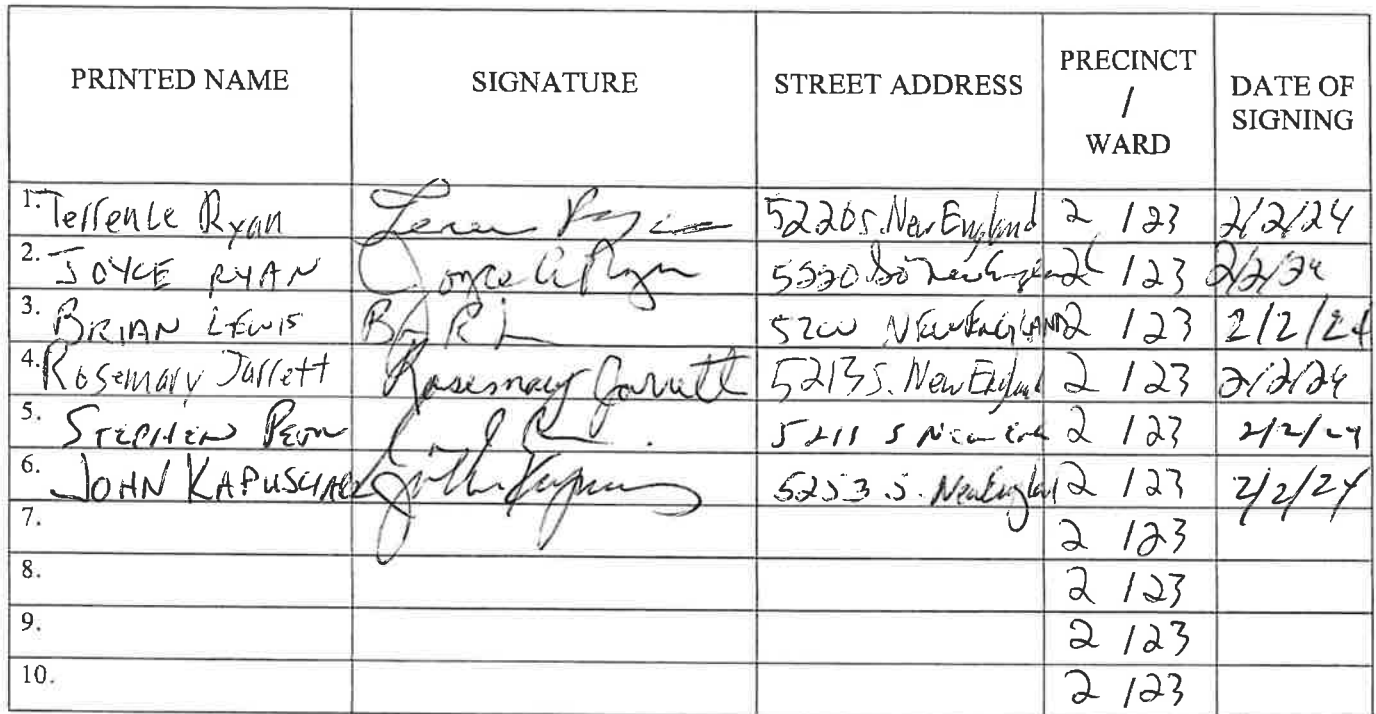 PRINTED NAME SIGNATURE STREET ADDRESS PRECINCT / WARD DATE OF SIGNING
1. Terrence Ryan 5220 S. New England 2 / 23 2/2/24
2. JOYCE RYAN Joyce A Ryan 5220 So New England 2 / 23 2/2/24
3. BRIAN LEWIS 5200 NEW ENGLAND 2 / 23 2/2/24
4. Rosemary Jarrett Rosemary Jarrett 5213 S. New England 2 / 23 2/2/24
5. STEPHEN 5211 S New 2 / 23 2/2/24
6. JOHN 5253 S. New England 2 / 23 2/2/24
7. 2 / 23
8. 2 / 23
9. 2 / 23
10. 2 / 23